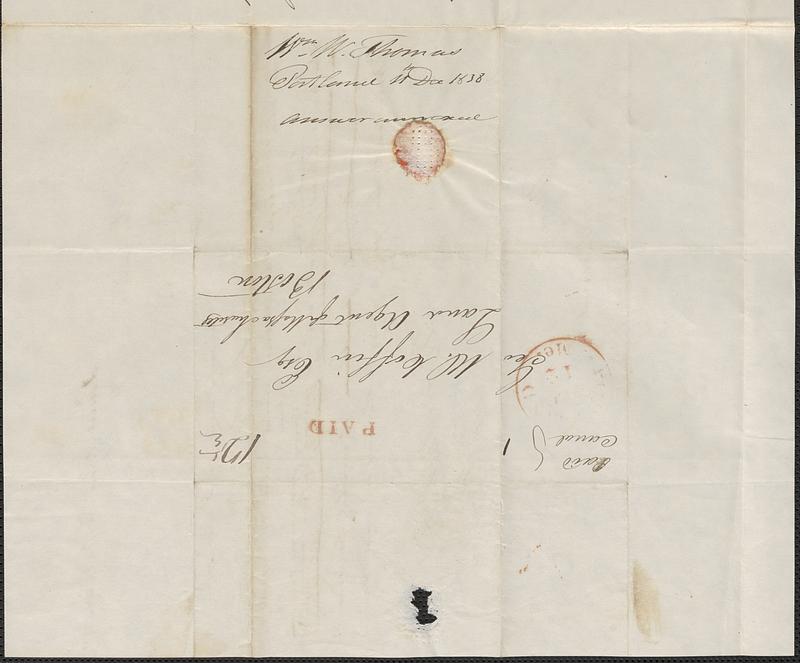 Wm W. Thomas
Portland 11 Dec 1838
answer
Geo W. Coffin Esq
Land Agent of Massachusetts
Boston
PAID
12½
Me.
Paid